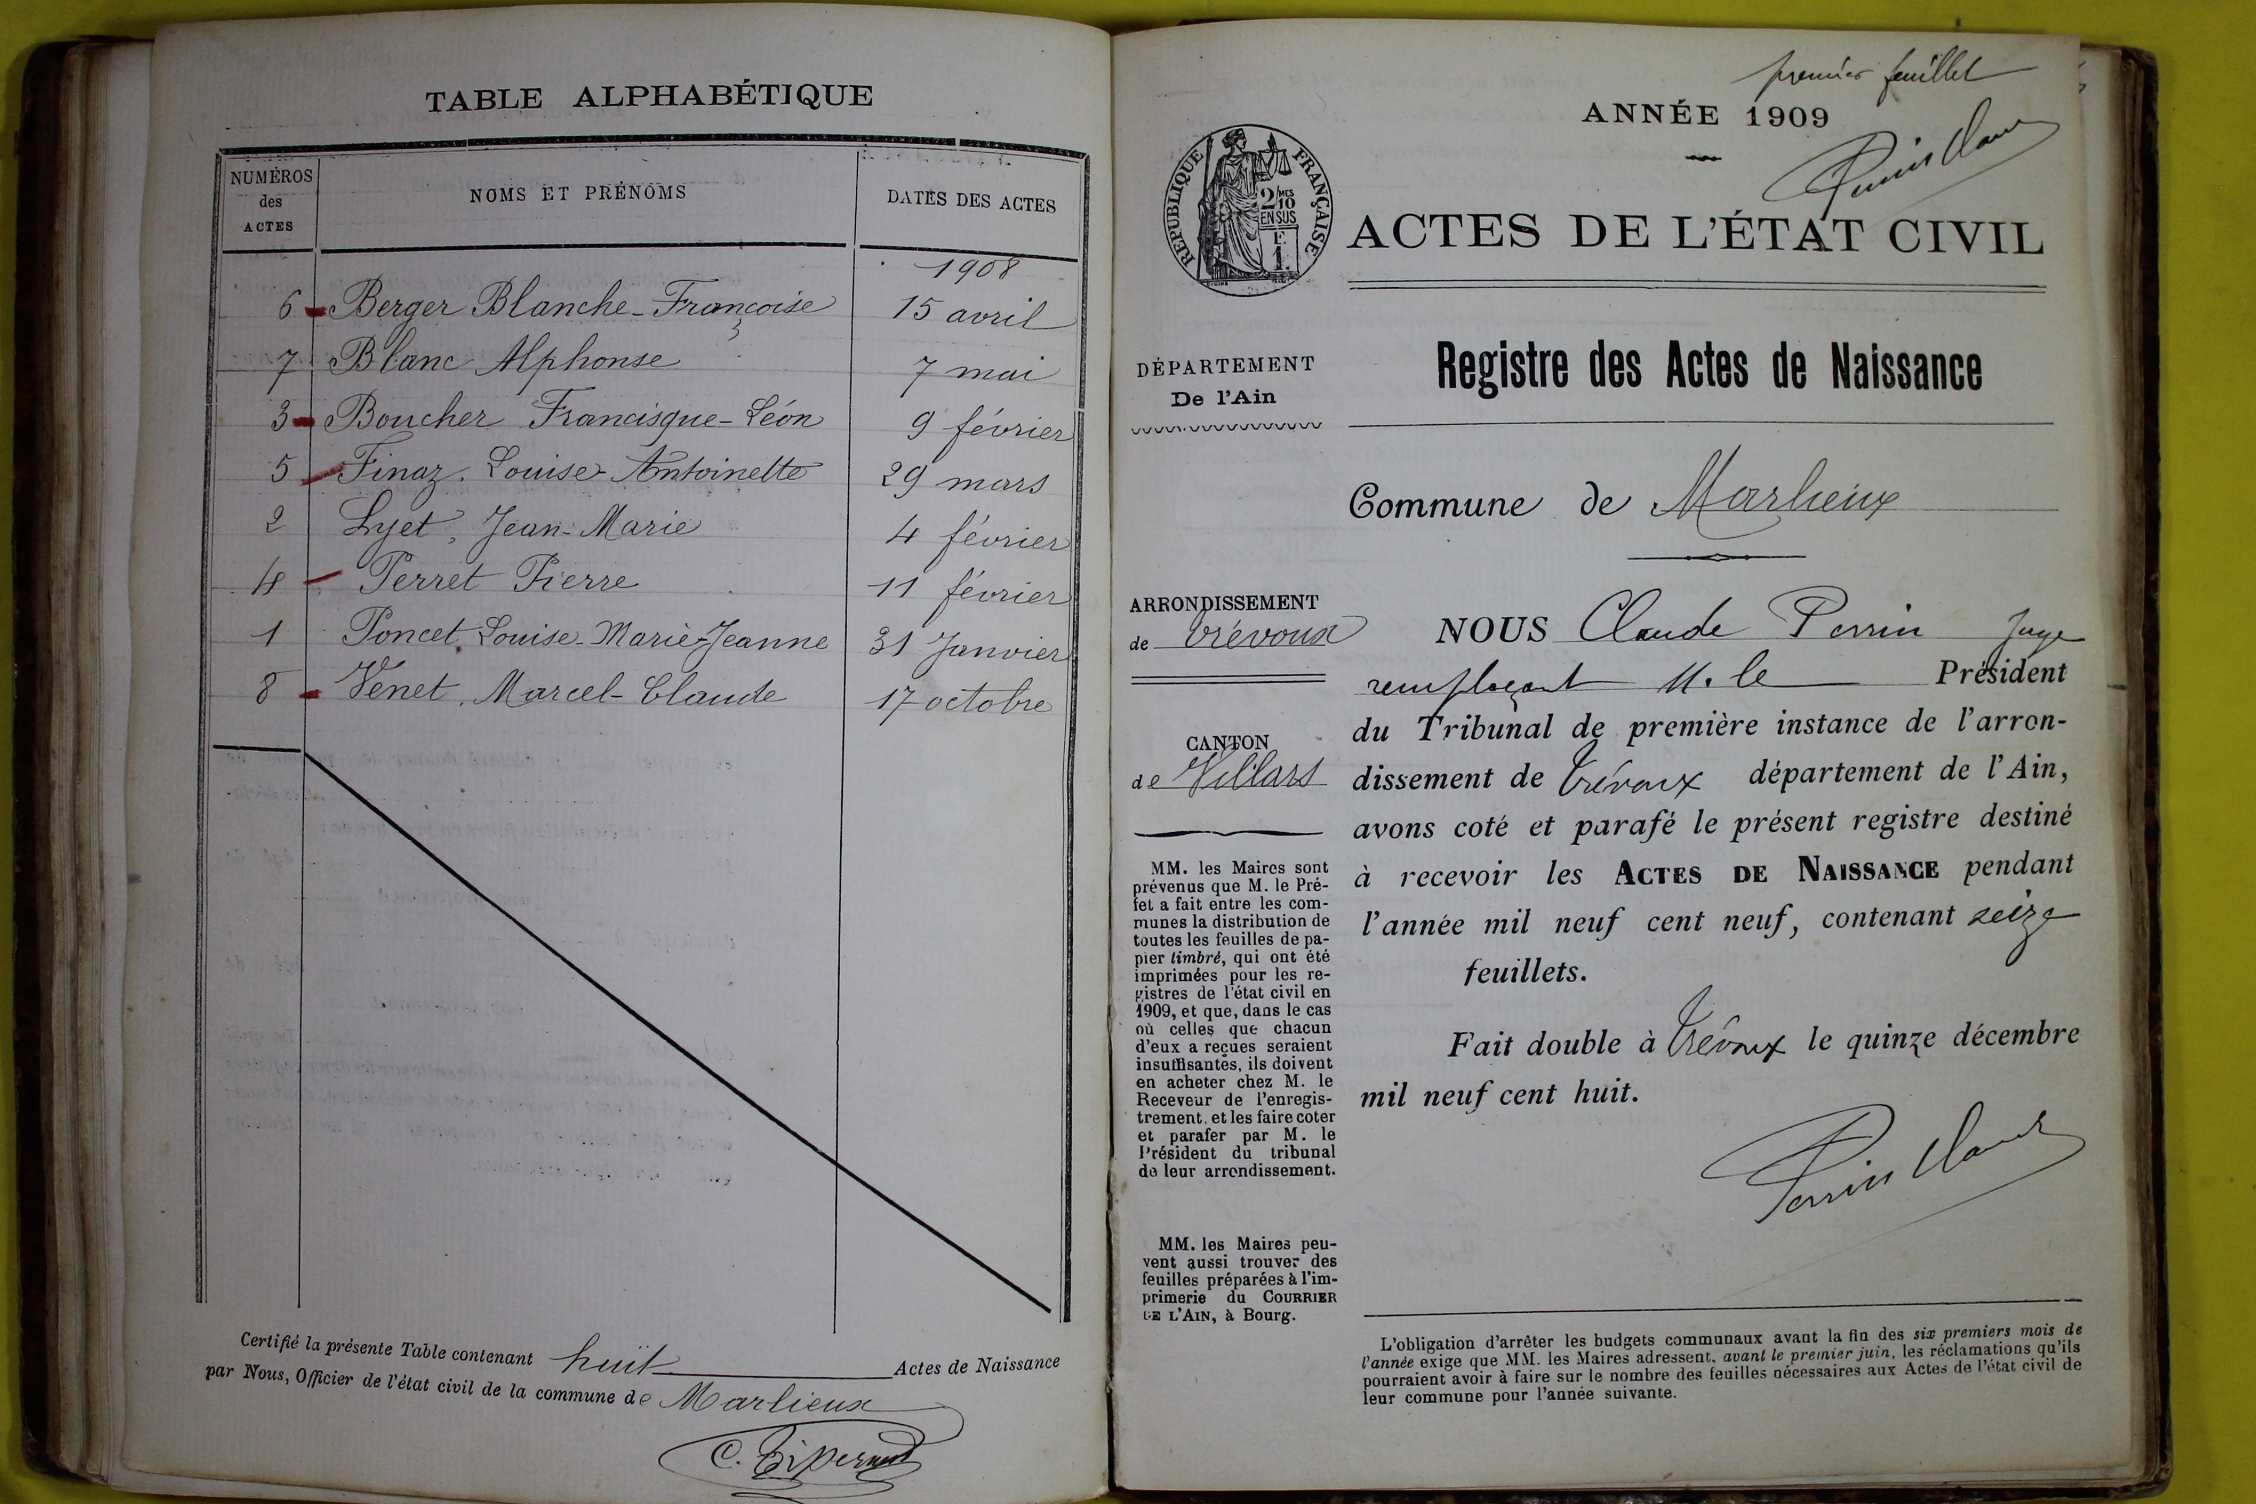 TABLE ALPHABÉTIQUE
NUMÉROS des ACTES
NOMS ET PRÉNOMS
DATES DES ACTES
1908
6 Berger Blanche-Françoise 15 avril
7 Blanc Alphonse 7 mai
3 Boucher Francisque-Léon 9 février
5 Finaz. Louise-Antoinette 29 mars
2 Lyet, Jean-Marie 4 février
4 Perret Pierre 11 février
1 Poncet, Louise-Marie-Jeanne 31 Janvier
8 Venet, Marcel-Claude 17 octobre
Certifié la présente Table contenant huit Actes de Naissance
par Nous, Officier de l'état civil de la commune de Marlieux
premier feuillet
ANNÉE 1909
Perrin Claude
RÉPUBLIQUE FRANÇAISE
2/10 MES
EN SUS
F.
1.
ACTES DE L'ÉTAT CIVIL
Registre des Actes de Naissance
DÉPARTEMENT
De l'Ain
Commune de Marlieux
ARRONDISSEMENT
de Trévoux
CANTON
de Villars
MM. les Maires sont
prévenus que M. le Pré-
fet a fait entre les com-
munes la distribution de
toutes les feuilles de pa-
pier timbré, qui ont été
imprimées pour les re-
gistres de l'état civil en
1909, et que, dans le cas
où celles que chacun
d'eux a reçues seraient
insuffisantes, ils doivent
en acheter chez M. le
Receveur de l'enregis-
trement, et les faire coter
et parafer par M. le
Président du tribunal
de leur arrondissement.
MM. les Maires peu-
vent aussi trouver des
feuilles préparées à l'im-
primerie du COURRIER
DE L'AIN, à Bourg.
NOUS Claude Perrin Juge
remplaçant M. le Président
du Tribunal de première instance de l'arron-
dissement de Trévoux département de l'Ain,
avons coté et parafé le présent registre destiné
à recevoir les ACTES DE NAISSANCE pendant
l'année mil neuf cent neuf, contenant seize
feuillets.
Fait double à Trévoux le quinze décembre
mil neuf cent huit.
Perrin Claude
L'obligation d'arrêter les budgets communaux avant la fin des six premiers mois de
l'année exige que MM. les Maires adressent, avant le premier juin, les réclamations qu'ils
pourraient avoir à faire sur le nombre des feuilles nécessaires aux Actes de l'état civil de
leur commune pour l'année suivante.